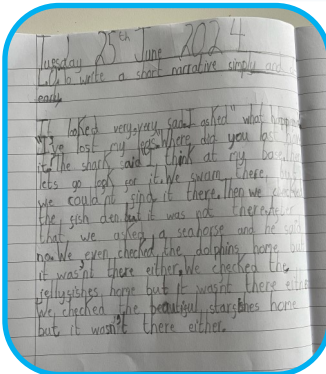 Tuesday 25th June 2024
L.O. to write a short narrative simply and
early.
It looked very, very sad. I asked "what happened
"I've lost my legs. Where did you last have
it? the shark said I think at my base, then
lets go look for it. We swam there, but
we couldnt find it there. Then we checked
the fish den. but it was not there. After
that we asked a seahorse and he said
no. We even checked the dolphins home but
it was'nt there either. We checked the
jellyfishes home but it wasnt there either
We checked the beautiful starfishes home
but it wasn't there either.